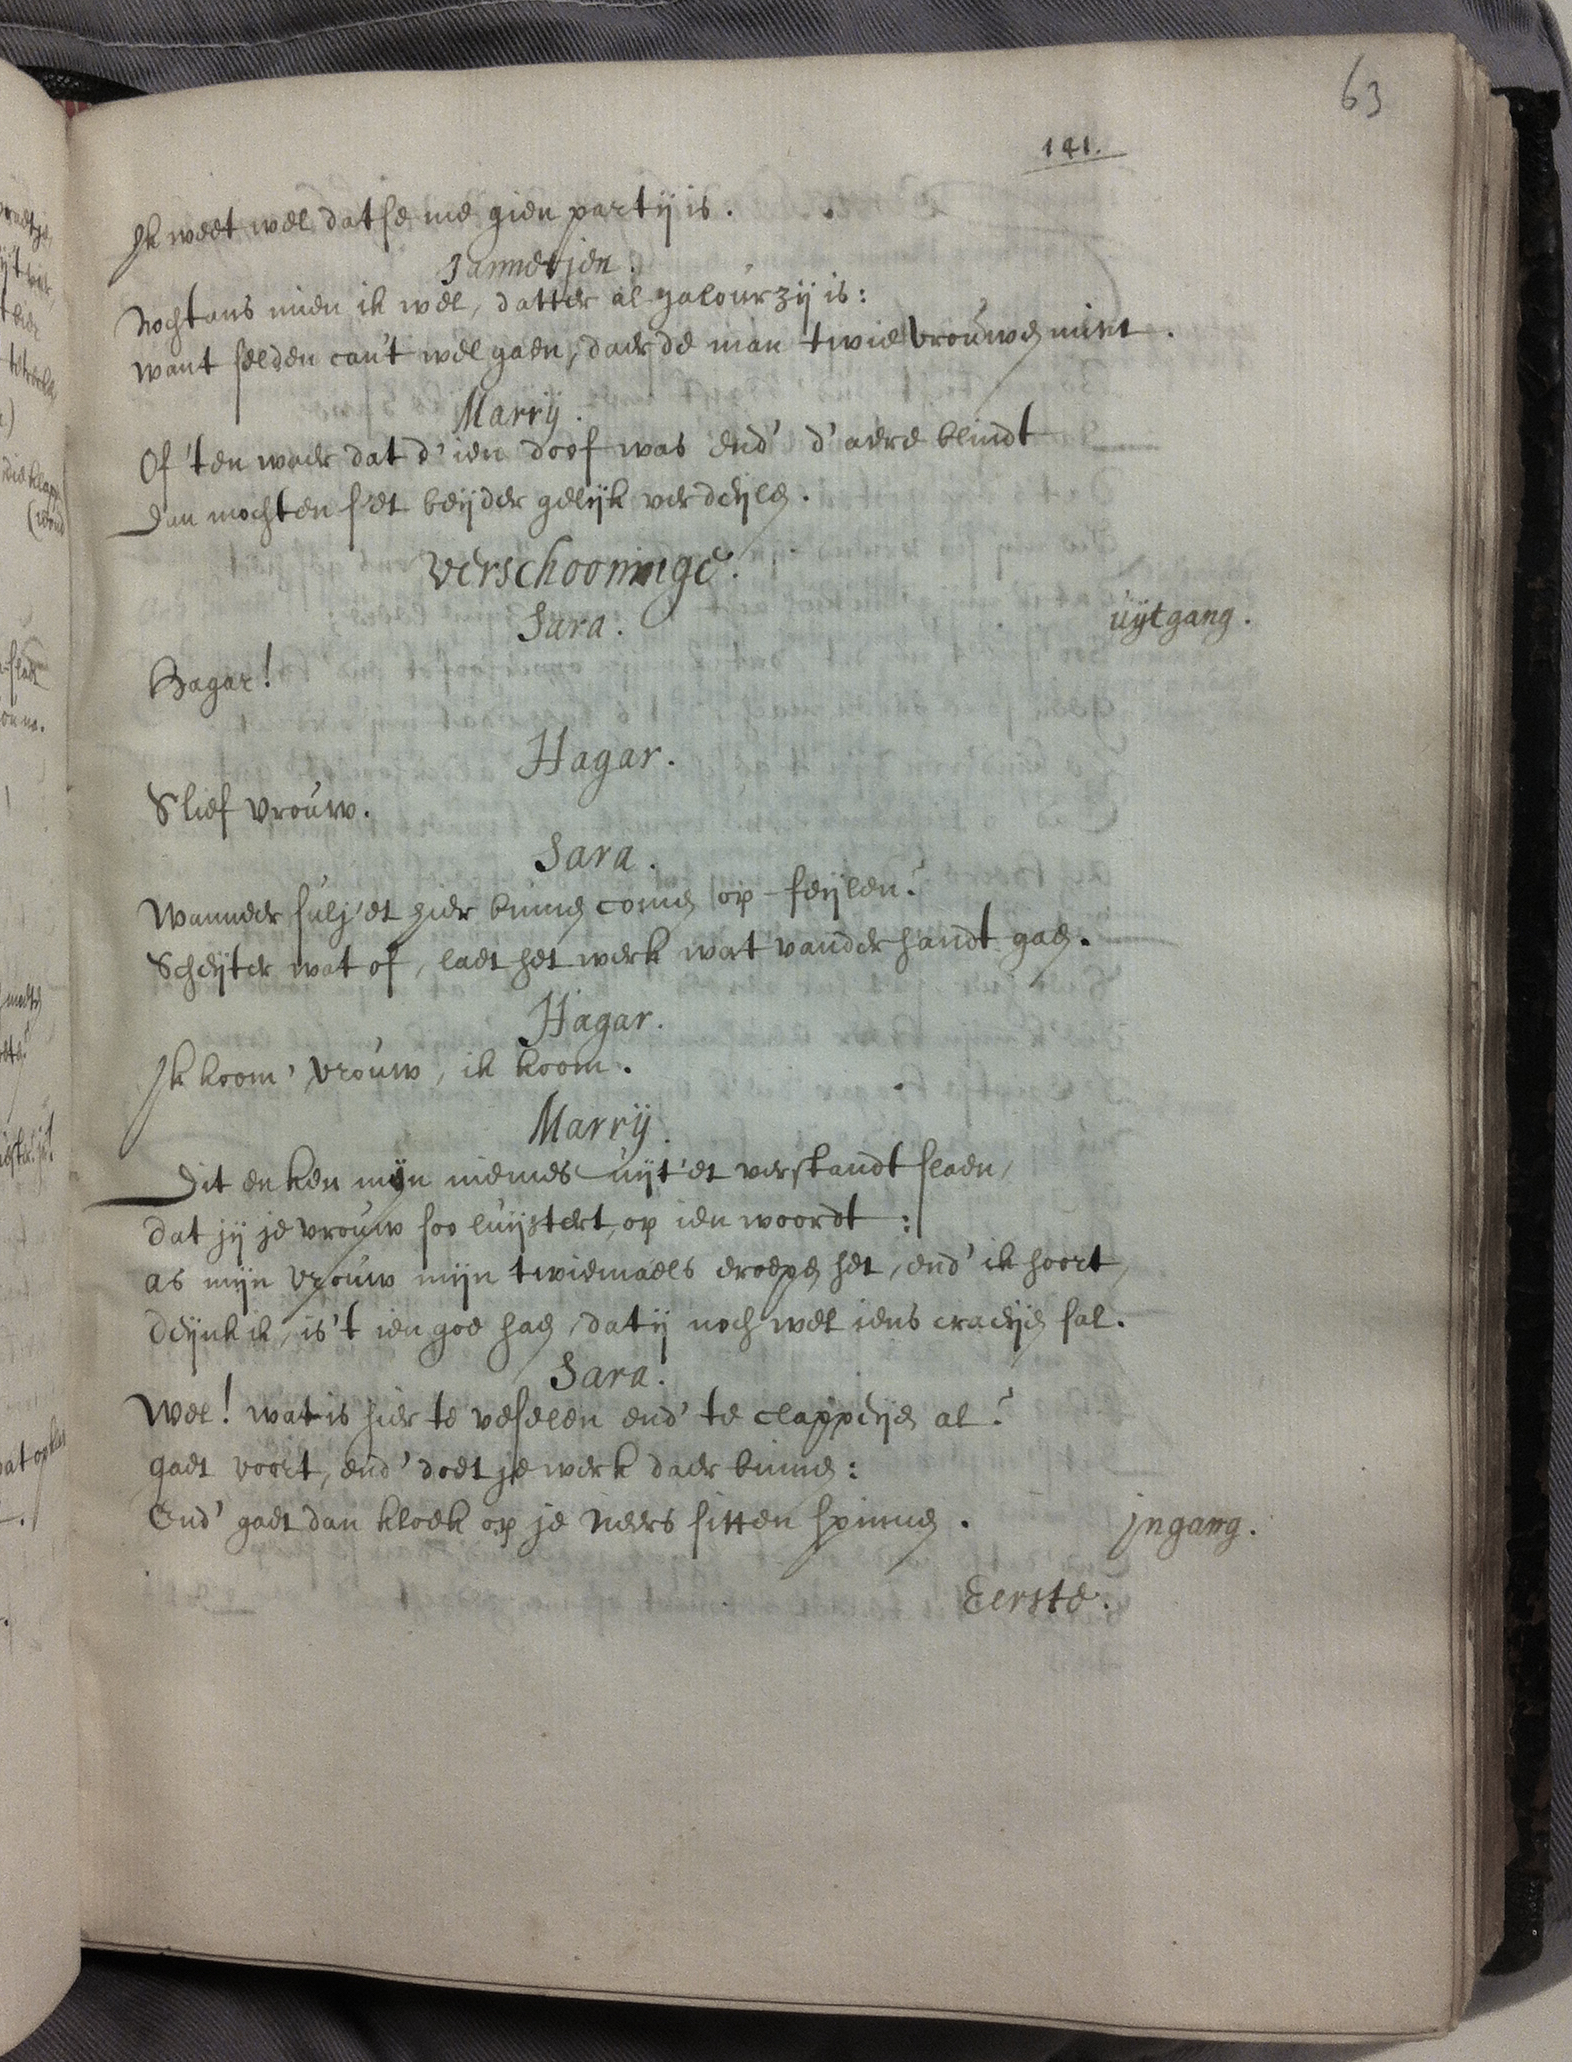 63
141.
Ik weet wel datse me gien partij is.
Jannetjen.
Nochtans mien ik wel, datter al jalourzij is:
want selden can't wel gaen, daer de man twie vrouwen mint.
Marrij.
Of 'ten waer dat d'ien doof was end' d'aere blindt
Dan mochten s'et beijder gelijk verdeijlen.
Verschooninge.
Sara.
uijtgang.
Hagar!
Hagar.
S'lief vrouw.
Sara.
Wanneer sulj'et hier binnen comen op-feijlen?
Scheijter wat of, laet het werk wat vander handt gaen.
Hagar.
Ik koom' vrouw, ik koom.
Marrij.
Dit en ken mijn niemes uijt'et verstandt slaen,
dat jij je vrouw soo luijstert, op ien woordt:
as mijn vrouw mijn twiemaels eroepen het, end' ik hoort,
deijnk ik, is't ien goe haen, dat ij noch wel iens craeijen sal.
Sara.
Wel! wat is hier te veselen end' te clappeijen al?
gaet voort, end' doet je werk daer binnen:
End' gaet dan kloek op je neers sitten spinnen.
jngang.
Eerste.